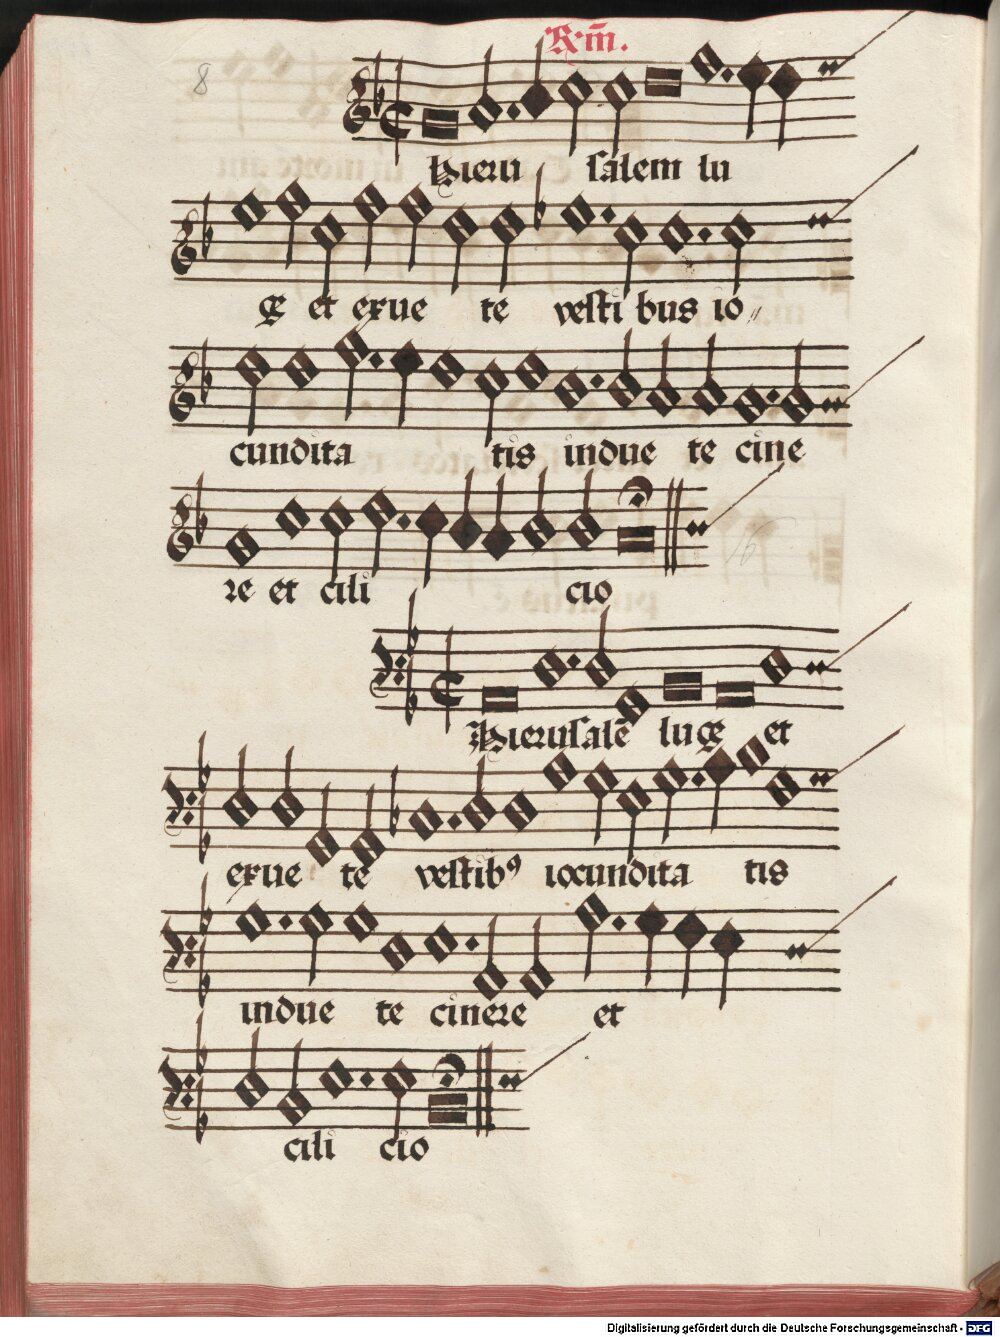 R. m̄.
8
Hieru salem lu
ge et exue te vesti bus io
cundita tis indue te cine
re et cili cio
16
Hierusalē luge et
exue te vestibꝰ iocundita tis
indue te cinere et
cili cio
Digitalisierung gefördert durch die Deutsche Forschungsgemeinschaft - DFG